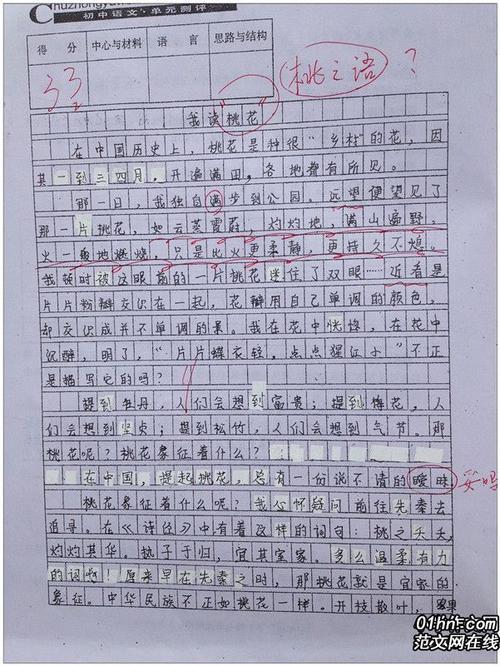 Chuzhongyuwen
初中语文·单元测评
得 分 中心与材料 语 言 思路与结构
33
桃之语 ?
我读“桃花”
在中国历史上，桃花是种很“乡村”的花，因
其一到三四月，开遍满田，各地都有所见。
那一日，我独自满步到公园。远望便望见了
那一片桃花，如云蒸霞蔚，灼灼地，满山遍野，
火一般地燃烧，只是比火更柔静，更持久不熄。
我顿时被这眼前的一片桃花迷住了双眼……近看是
片片粉瓣交织在一起，花瓣用自己单调的颜色，
却交织成并不单调的景。我在花中恍惚，在花中
沉醉，明了，“片片蝶衣轻，点点猩红小”不正
是描写它的吗？
提到牡丹，人们会想到富贵；提到梅花，人
们会想到坚贞；提到松竹，人们会想到气节。那
桃花呢？桃花象征着什么？
在中国，提起桃花，总有一份说不清的暧昧
妥吗
桃花象征着什么呢？我心怀疑问前往先秦去
追寻。在《诗经》中有着这样的词句：桃之夭夭，
灼灼其华。之子于归，宜其室家。多么温柔有力
的词啊！原来早在先秦之时，那桃花就是宜家的
象征。中华民族不正如桃花一样。开枝散叶，
01hn.com
范文网在线